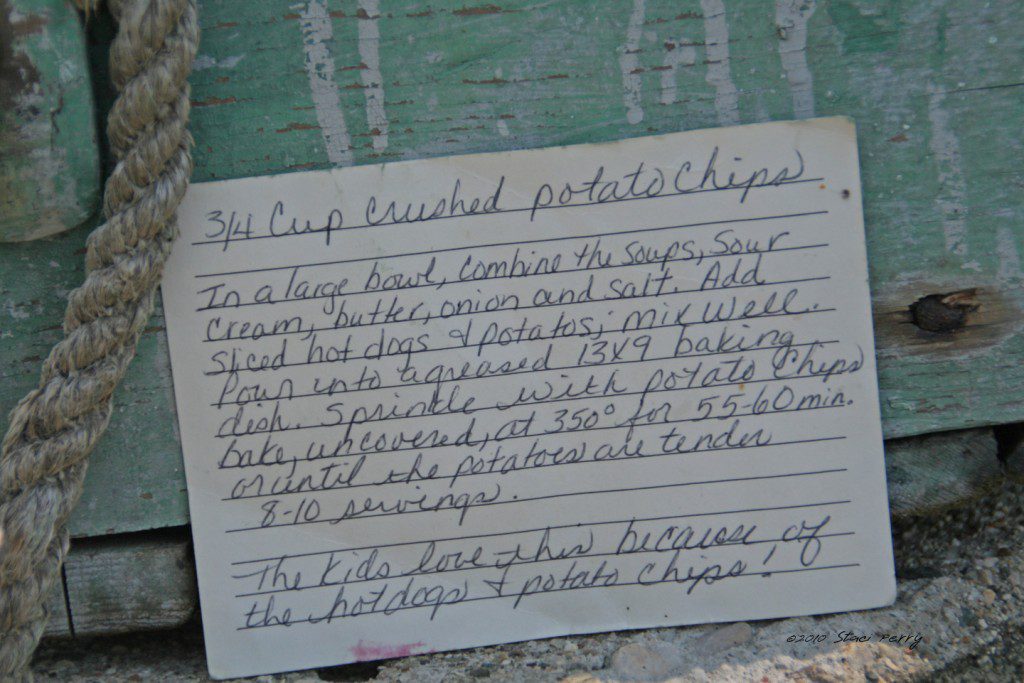 3/4 Cup crushed potato Chips
In a large bowl, combine the soups, Sour
Cream, butter, onion and salt. Add
sliced hot dogs & potatos; mix well.
Pour into a greased 13x9 baking
dish. Sprinkle with potato Chips
bake, uncovered, at 350° for 55-60 min.
or until the potatoes are tender
8-10 servings.
The kids love this because of
the hotdogs & potato chips!
©2010 Staci Perry